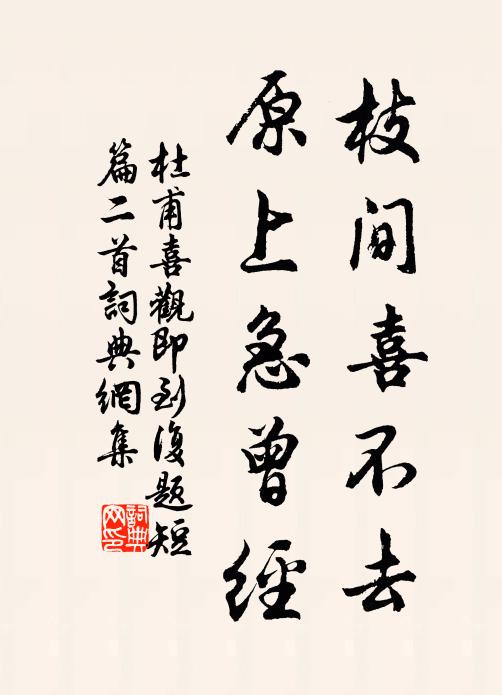 枝间喜不去
原上急曾經
杜甫喜觀即到復題短
篇二首詞典網集
詞典
网印